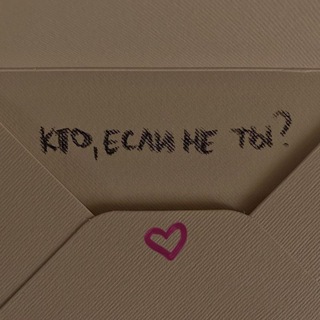 КТО, ЕСЛИ НЕ ТЫ?